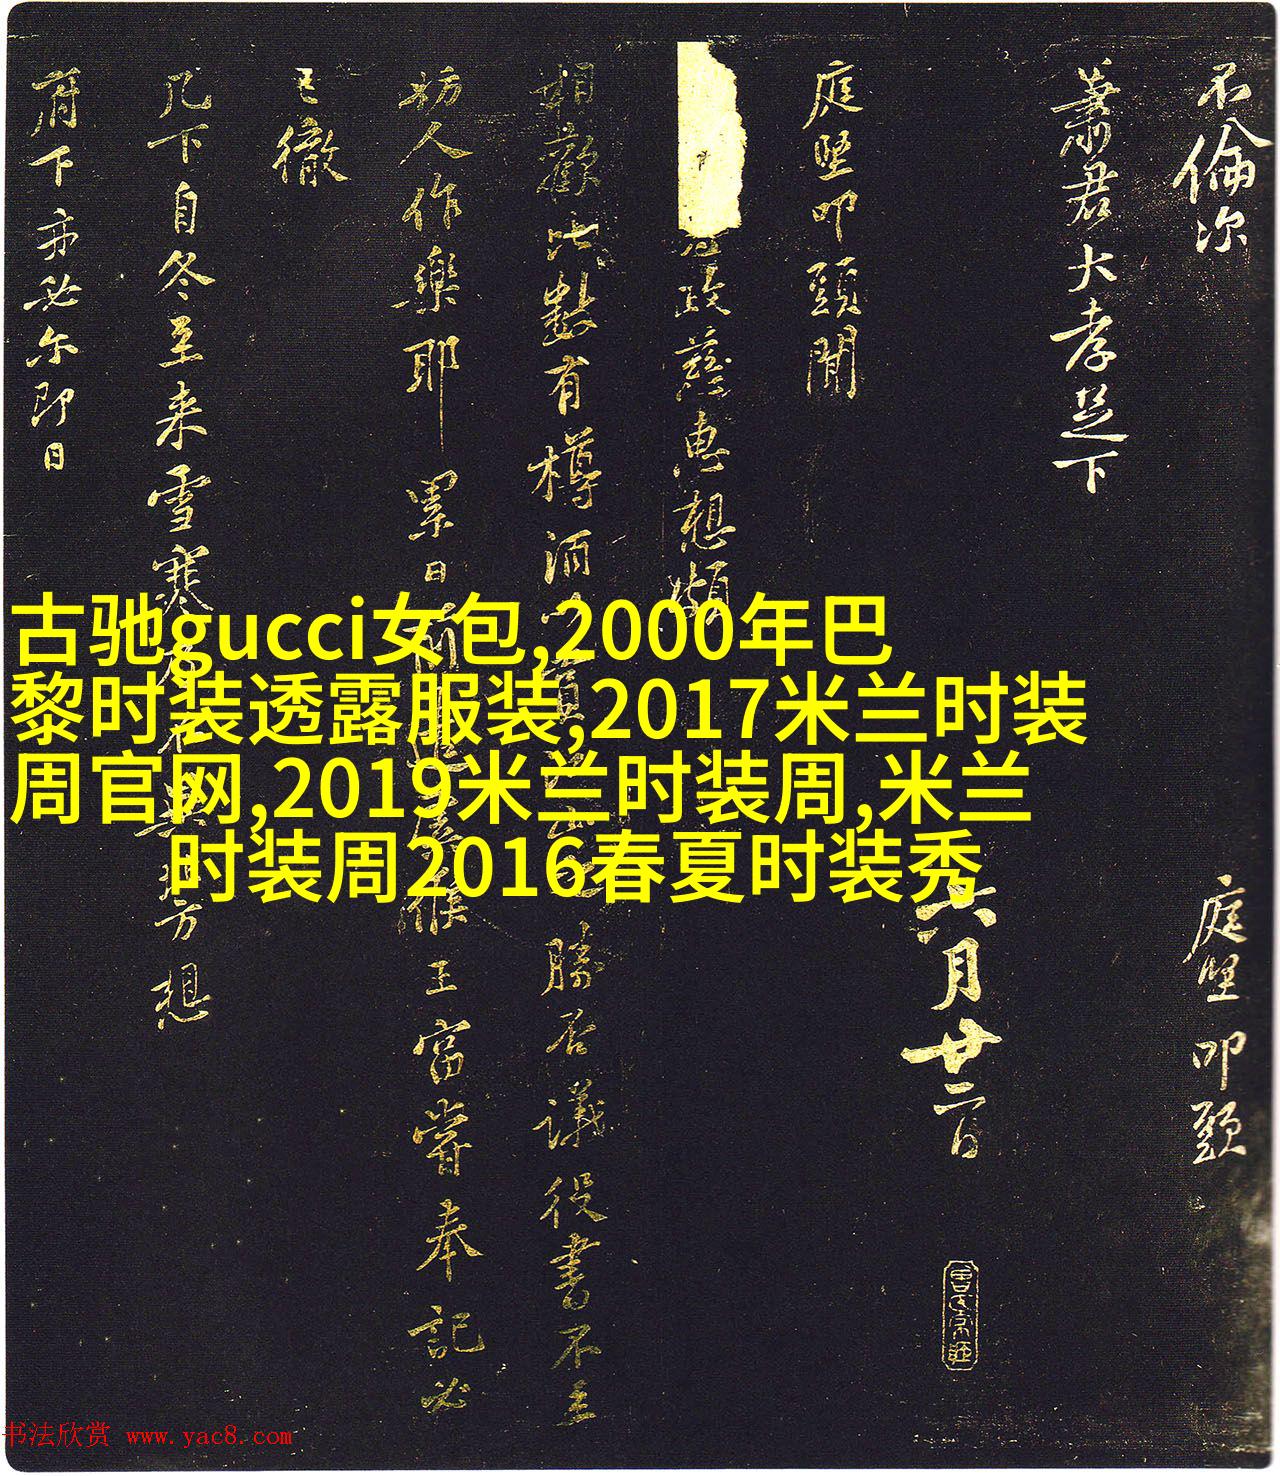 不倫次
庭堅叩頭
蕭君大孝足下
六月廿二日
庭堅叩頭聞
政慈惠想頗
相歡比數有樽酒
勝否議役書不
人作樂耶累日
王富嘗奉記必
已徹
几下自冬至来雪寒
方想
府下亦必尔即日
古驰gucci女包,2000年巴
黎时装透露服装,2017米兰时装
周官网,2019米兰时装周,米兰
时装周2016春夏时装秀
书法欣赏 www.yac8.com